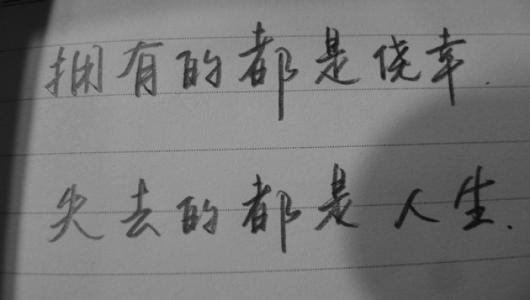 拥有的都是侥幸.
失去的都是人生.